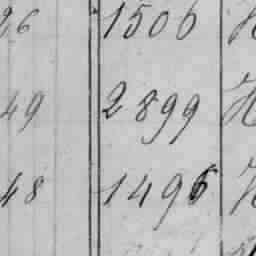 26 1506 H
49 2899 H
48 1496 H